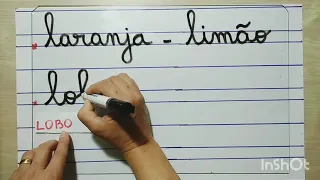 laranja - limão
lob
LOBO
InShOt